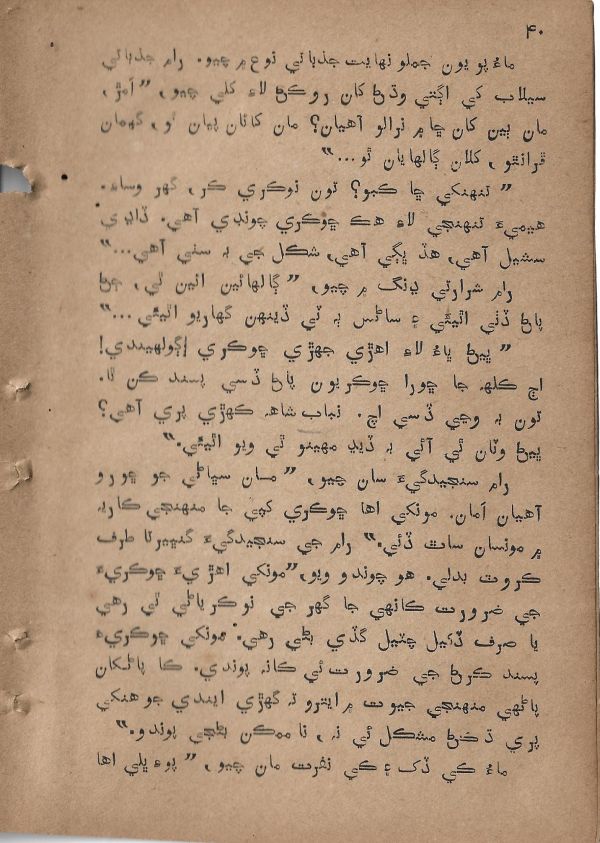 ۴۰
ماءُ پويون جملو نهايت جذباتي نوع ۾ چيو. رام جذباتي
سيلاب کي اڳتي وڌڻ کان روڪڻ لاءِ کلي چيو، ”اَمڙ،
مان ٻين کان ڇا ۾ نرالو آهيان؟ مان کائان پيان ٿو، گهمان
ڦرانٿو، کلان ڳالهايان ٿو...“
” تنهنکي ڇا کبو؟ تون نوڪري ڪر، گهر وساءِ.
هيميءَ تنهنجي لاءِ هڪ ڇوڪري چونڊي آهي. ڏاڍي
سشيل آهي، هڏ ڀڳي آهي، شڪل جي بہ سٺي آهي...“
رام شرارتي ڍنگ ۾ چيو، ” ڳالهائين ائين ٿي، ڄڻ
پاڻ ڏٺي اٿيئي ۽ ساڻس بہ ٽي ڏينهن گهاريو اٿيئي...“
” ڀيڻ ڀاءُ لاءِ اهڙي جهڙي ڇوڪري ڳولهيندي!
اڄ ڪلهہ جا ڇورا ڇوڪريون پاڻ ڏسي پسند ڪن ٿا.
تون بہ وڃي ڏسي اچ. نباب شاهہ ڪهڙي پري آهي؟
ڀيڻ وٽان ٿي آئي بہ ڏيڍ مهينو ٿي ويو اٿيئي.“
رام سنجيدگيءَ سان چيو، ” مسان سڀاڻي جو ڇورو
آهيان اَمان. مونکي اها ڇوڪري کپي جا منهنجي ڪاريہ
۾ مونسان ساٿ ڏئي.“ رام جي سنجيدگيءَ گنڀيرتا طرف
ڪروٽ بدلي. هو چوندو ويو، ”مونکي اهڙيءَ ڇوڪريءَ
جي ضرورت ڪانهي جا گهر جي نوڪرياڻي ٿي رهي
يا صرف ڏنڊيل چٽيل گڏي بڻي رهي. مونکي ڇوڪريءَ
پسند ڪرڻ جي ضرورت ئي ڪانہ پوندي. ڪا پاڻڪان
پاڻهي منهنجي جيوت ۾ ايترو تہ گهڙي ايندي جو هنکي
پري ڌڪڻ مشڪل ئي نہ، ناممڪن بڻجي پوندو.“
ماءُ کي ڏک ۽ کي نفرت مان چيو، ” پوءِ ڀلي اها